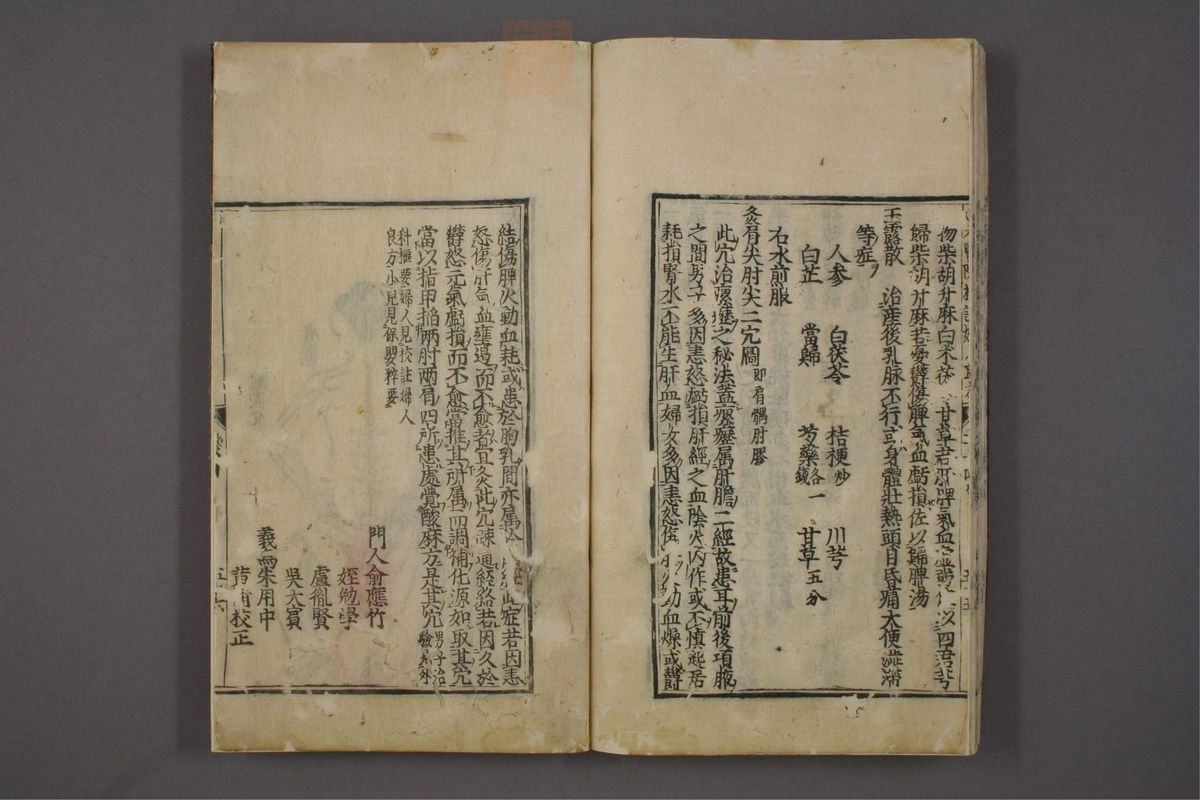 歸柴胡升麻若憂鬱傷脾氣血虧損佐以歸脾湯
玉露散 治産後乳脉不行或身體壯熱頭目昏痛大便澁滯
等症
人参 白茯苓 桔梗炒 川芎
白芷 當歸 芍藥各一錢 甘草五分
右水煎服
灸肩尖肘尖二穴圖即肩髃肘膠
此穴治瘰癧之秘法蓋瘰癧属肝膽二經故患耳前後項腋
之間男子多因恚怒虧損肝經之血陰火内作或不慎起居
耗損腎水不能生肝血婦女多因恚怒傷肝火動血燥或欝
結傷脾火動血耗或患於胸乳間亦属 症若因恚
怒傷肝氣血壅遏而不愈者宜灸此穴疎通經絡若因久於
欝怒元氣虧損而不愈當推其所属而調補化源如取其穴
當以指甲掐兩肘兩肩四所患處覺酸麻方是其穴男子治驗見外
科樞要婦人見校註婦人
良方小兒見保嬰粹要
門人俞應竹
姪勉學
盧胤賢
吳大賓
朱用中
校正